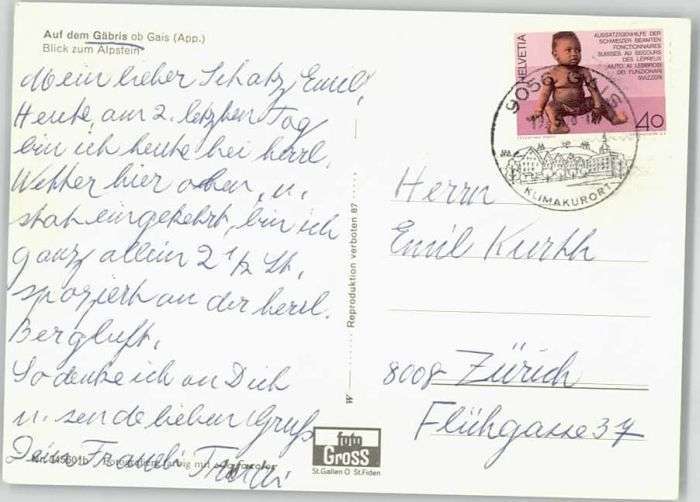 Auf dem Gäbris ob Gais (App.)
Blick zum Alpstein
Mein lieber Schatz, Emil,
Heute, am 2. letzten Tag
bin ich heute bei herrl.
Wetter hier oben, u.
statt eingekehrt, bin ich
ganz allein 2 1/2 St.
spaziert an der herrl.
Bergluft.
So denke ich an Dich
u. sende lieben Gruss
Deine
Nr. farbig mit
W Reproduktion verboten 87
foto
Gross
St.Gallen O St.Fiden
HELVETIA
AUSSÄTZIGENHILFE DER
SCHWEIZER BEAMTEN
FONCTIONNAIRES
SUISSES AU SECOURS
DES LÉPREUX
AIUTO AI LEBBROSI
DEI FUNZIONARI
SVIZZERI
40
9056 GAIS
KLIMAKURORT
Herrn
Emil Kurth
8008 Zürich
Flühgasse 37